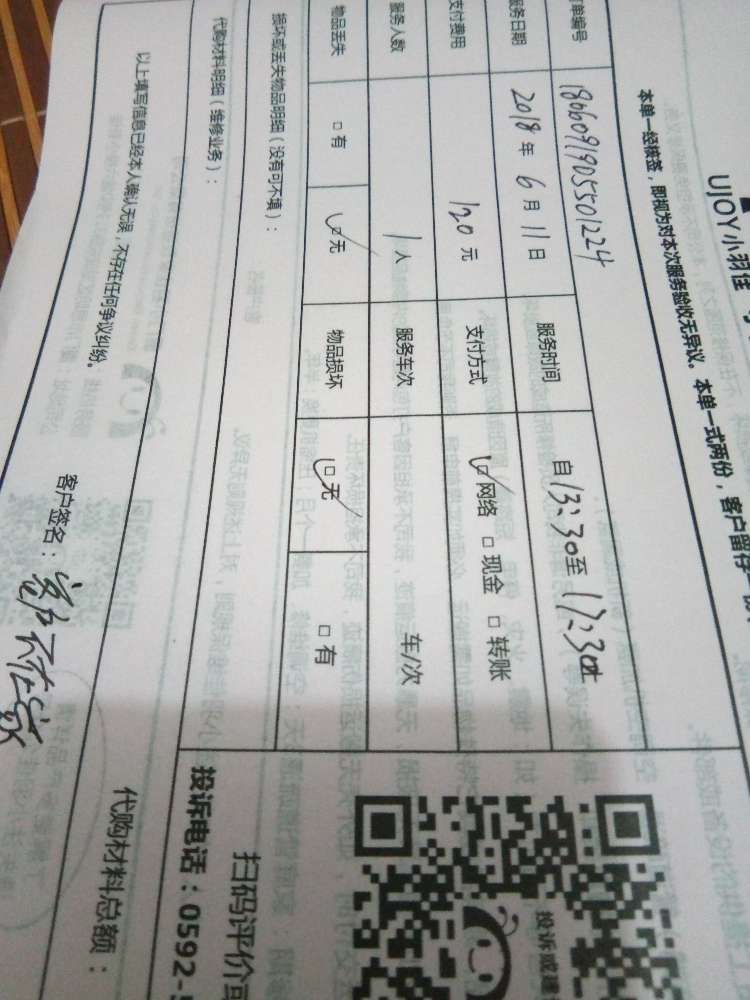 UJOY小羽佳
本单一经核签，即视为对本次服务验收无异议。本单一式两份，客户留存
单编号 1806091905501224
服务日期 2018年6月11日 服务时间 自13:30至17:30止
支付费用 120元 支付方式 ☑网络 □现金 □转账
服务人数 1人 服务车次 车/次
物品丢失 □有 ☑无 物品损坏 ☑无 □有
损坏或丢失物品明细（没有可不填）：
代购材料明细（维修业务）：
代购材料总额：
以上填写信息已经本人确认无误，不存在任何争议纠纷。
客户签名：客户不在家
投诉或建
扫码评价
投诉电话：0592-